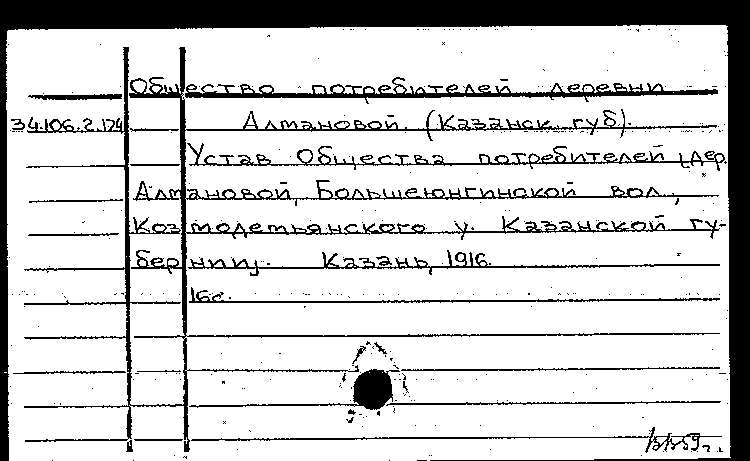 Общество потребителей деревни
34.106.2.124 Алмановой, (Казанск. губ).
Устав Общества потребителей дер.
Алмановой, Большеюнгинской вол.,
Козмодемьянского у. Казанской гу-
бернии. Казань, 1916.
16с.